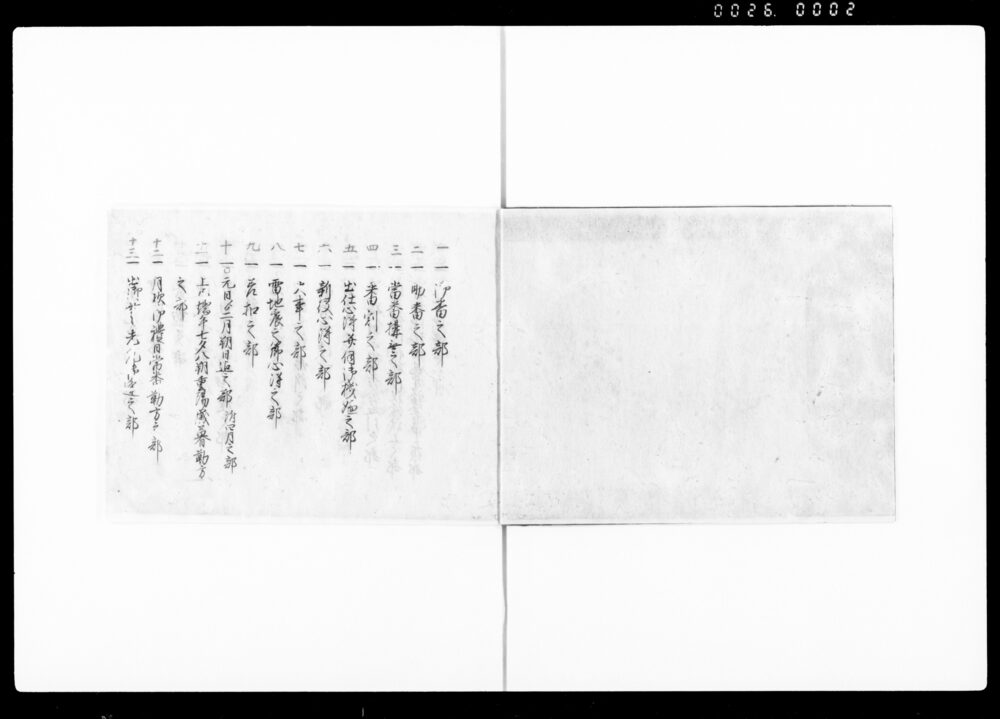 0026. 0002
一一 御番之部
二一 助番之部
三一 當番構之部
四一 番割之部
五一 出仕心得并伺御機嫌之部
六一 新役心得之部
七一 火事之部
八一 雷地震之節心得之部
九一 名扣之部
十一 元日ゟ二月朔日迄之部
十一一 上巳端午七夕八朔重陽歳暮勤方
之部
十二一 月次御禮日當番勤方之部
十三一 出御
之部